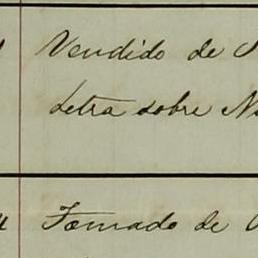 Vendido de
Letra sobre
Tomado de